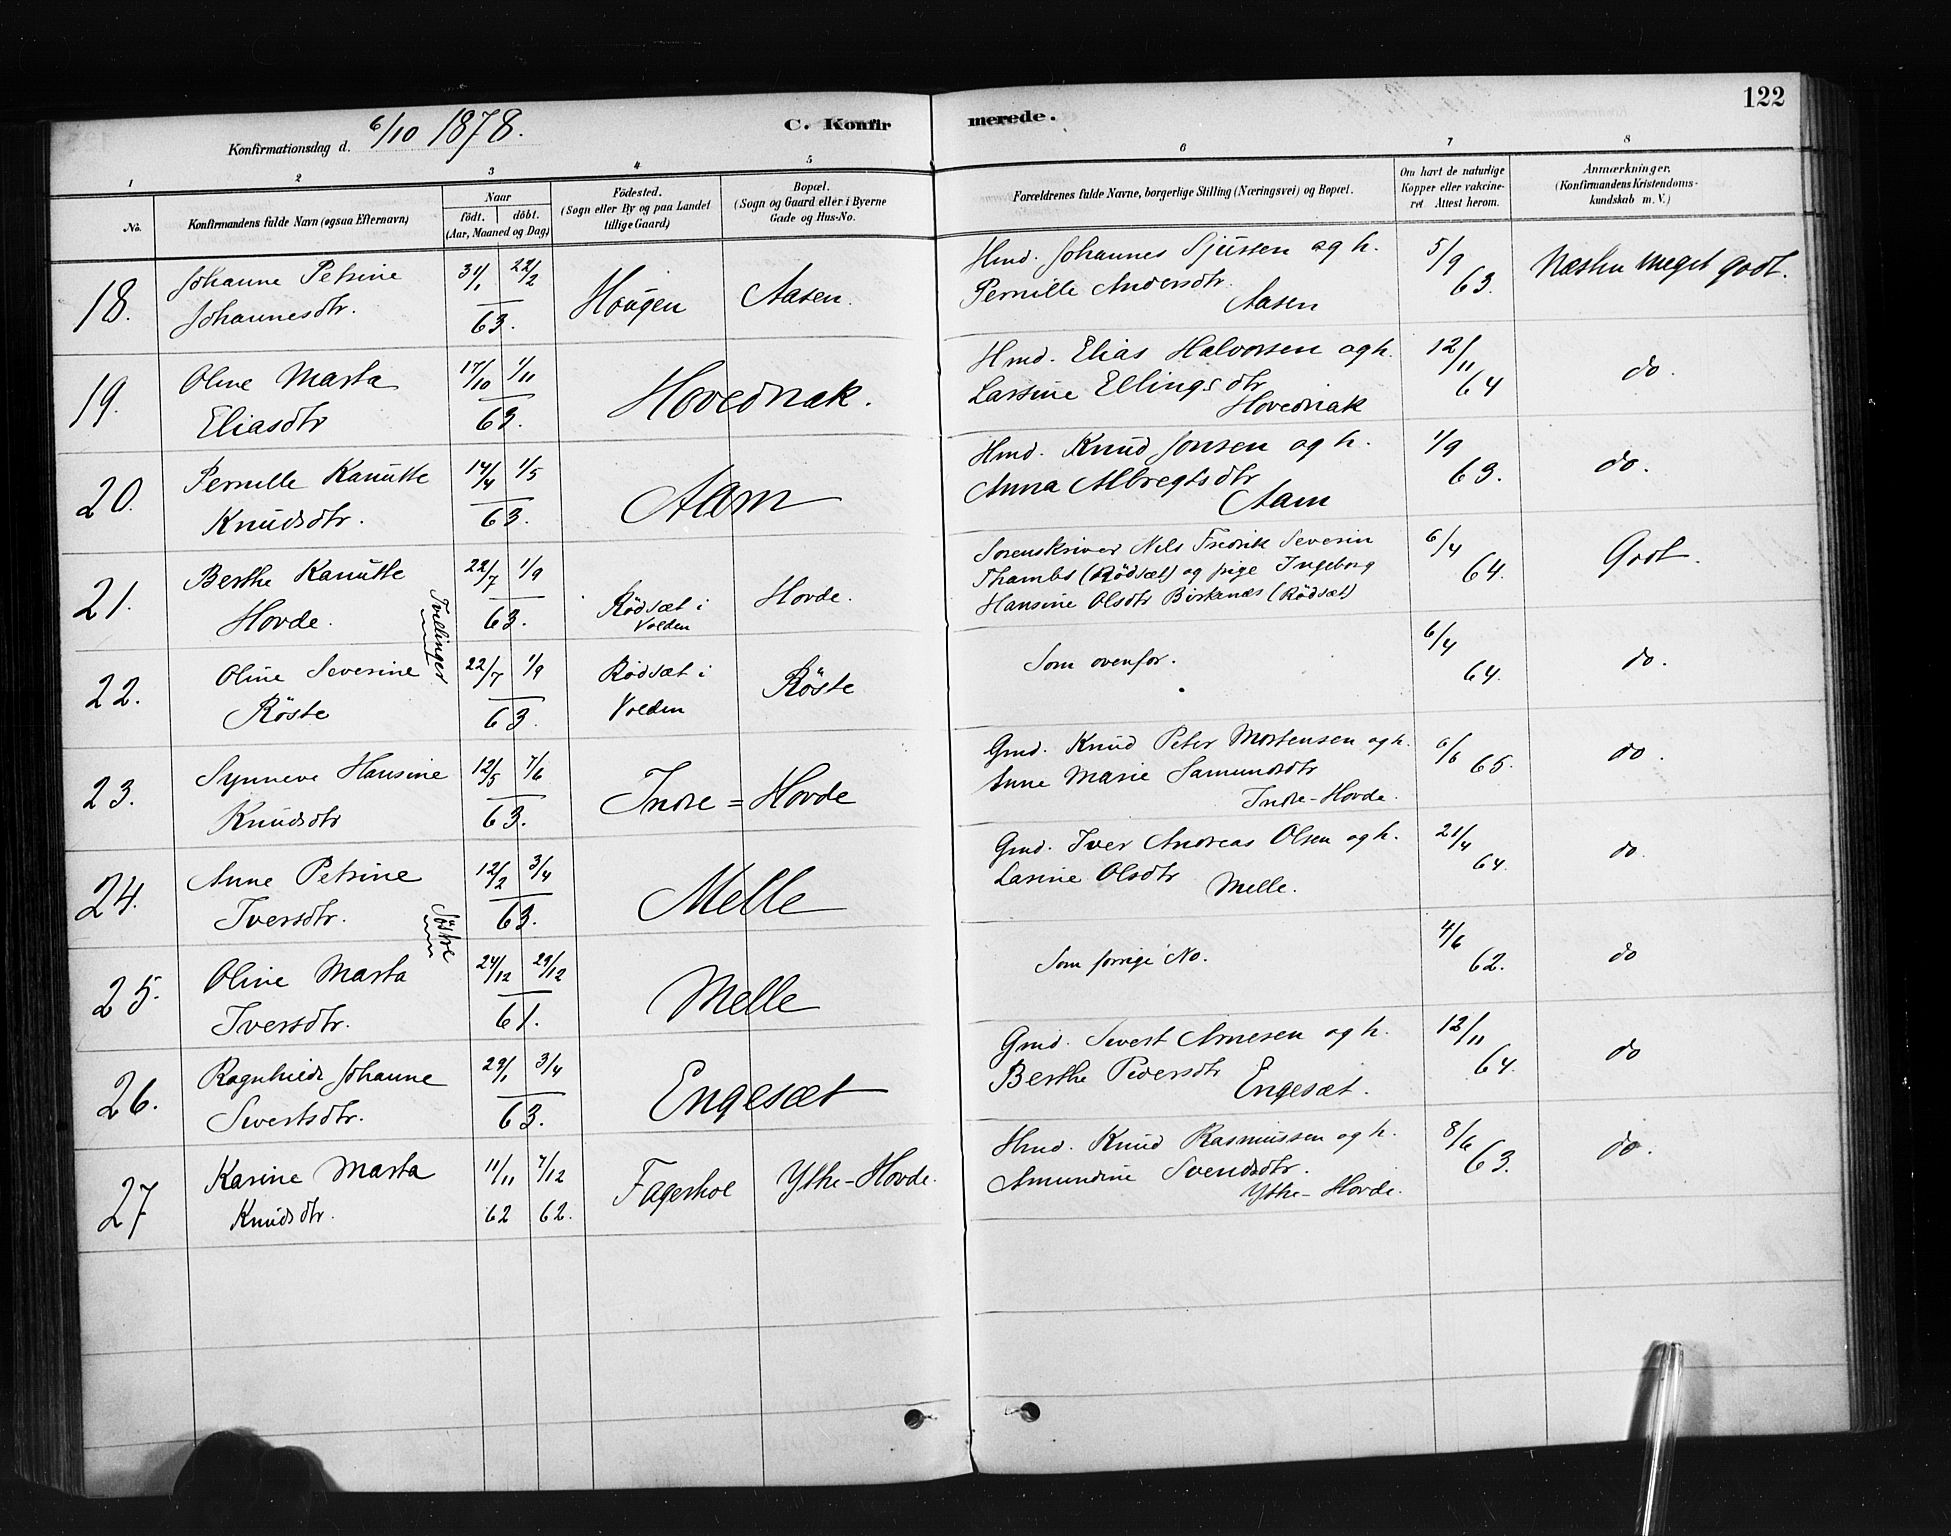 122
Konfirmationsdag d. 6/10 1878.
C. Konfirmerede.
1 2 3 4 5 6 7 8
No.
Konfirmandens fulde Navn (ogsaa Efternavn)
Naar
født. døbt.
(Aar, Maaned og Dag)
Födested.
(Sogn eller By og paa Landet
tillige Gaard)
Bopæl.
(Sogn og Gaard eller i Byerne
Gade og Hus-No.
Forældrenes fulde Navne, borgerlige Stilling (Næringsvei) og Bopæl.
Om havt de naturlige
Kopper eller vakcine-
ret Attest herom.
Anmærkninger,
(Konfirmandens Kristendoms-
kundskab m. V.)
18. Johanne Petrine 31/1 22/2 Hougen Aasen. Hmd. Johannes Sjursen og h. 5/9 Næsten meget godt.
Johannesdtr. 63. Pernille Andersdtr. 63.
Aasen
19. Oline Marta 17/10 1/11 Hovednak. Hmd. Elias Halvorsen og h. 12/11 do.
Eliasdtr 63. Larsine Ellingsdtr 64
Hovednak
20. Pernille Kanutte 14/4 1/5 Aam Hmd. Knud Jonsen og h. 1/9 do.
Knudsdtr. 63. Anna Albregtsdtr 63.
Aam
21. Berthe Kanutte 22/7 1/9 Rödsæt i Hovde. Sorenskriver Nils Fredrik Severin 6/4 Godt.
Hovde. 63. Volden Thambs (Rödsæt) og pige Ingeborg 64.
Hansine Olsdtr Birkenæs (Rödsæt)
Tvillinger
22. Oline Severine 22/7 1/9 Rödsæt i Röste Som ovenfor. 6/4 do.
Röste 63. Volden 64.
23. Synneve Hansine 12/5 7/6 Indre=Hovde Gmd. Knud Peter Mortensen og h. 6/6 do.
Knudsdtr 63. Anne Marie Samundsdtr 65.
Indre-Hovde.
24. Anne Petrine 12/2 3/4 Melle Gmd. Iver Andreas Olsen og h. 21/4 do.
Iversdtr. 63. Larine Olsdtr 64.
Melle.
Söstre
25. Oline Marta 24/12 29/12 Melle Som forrige No. 4/6 do
Iversdtr. 61. 62.
26. Ragnhilde Johanne 29/1 3/4 Engesæt Gmd. Sivert Arnesen og h. 12/11 do
Sivertsdtr. 63. Berthe Pedersdtr 64.
Engesæt.
27 Karine Marta 11/11 7/12 Ytre-Hovde. Hmd. Knud Rasmussen og h. 8/6 do.
Knudsdtr. 62 62. Amundine Svendsdtr. 63.
Ytre-Hovde.